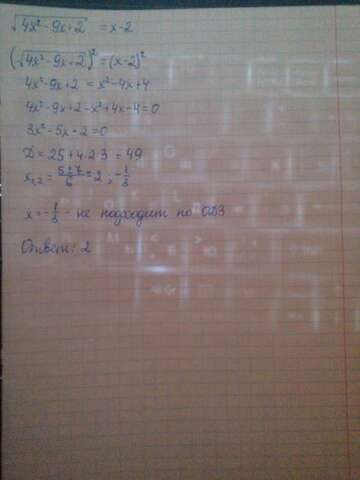 √4x²-9x+2 = x-2
(√4x²-9x+2)² = (x-2)²
4x²-9x+2 = x²-4x+4
4x²-9x+2-x²+4x-4=0
3x²-5x-2=0
D=25+4·2·3=49
x₁,₂=(5±7)/6=2; -1/3
x=-1/3 - не подходит по ОДЗ
Ответ: 2